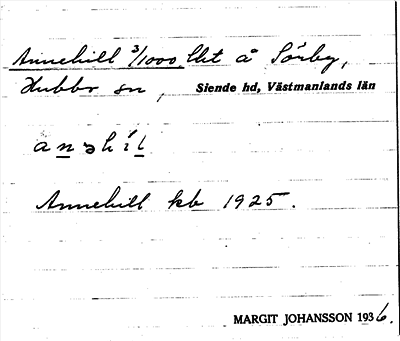 Annehill 3/1000 lht å Sörby,
Hubbo sn, Siende hd, Västmanlands län
anəhíl
Annehill kb 1925.
MARGIT JOHANSSON 1936.